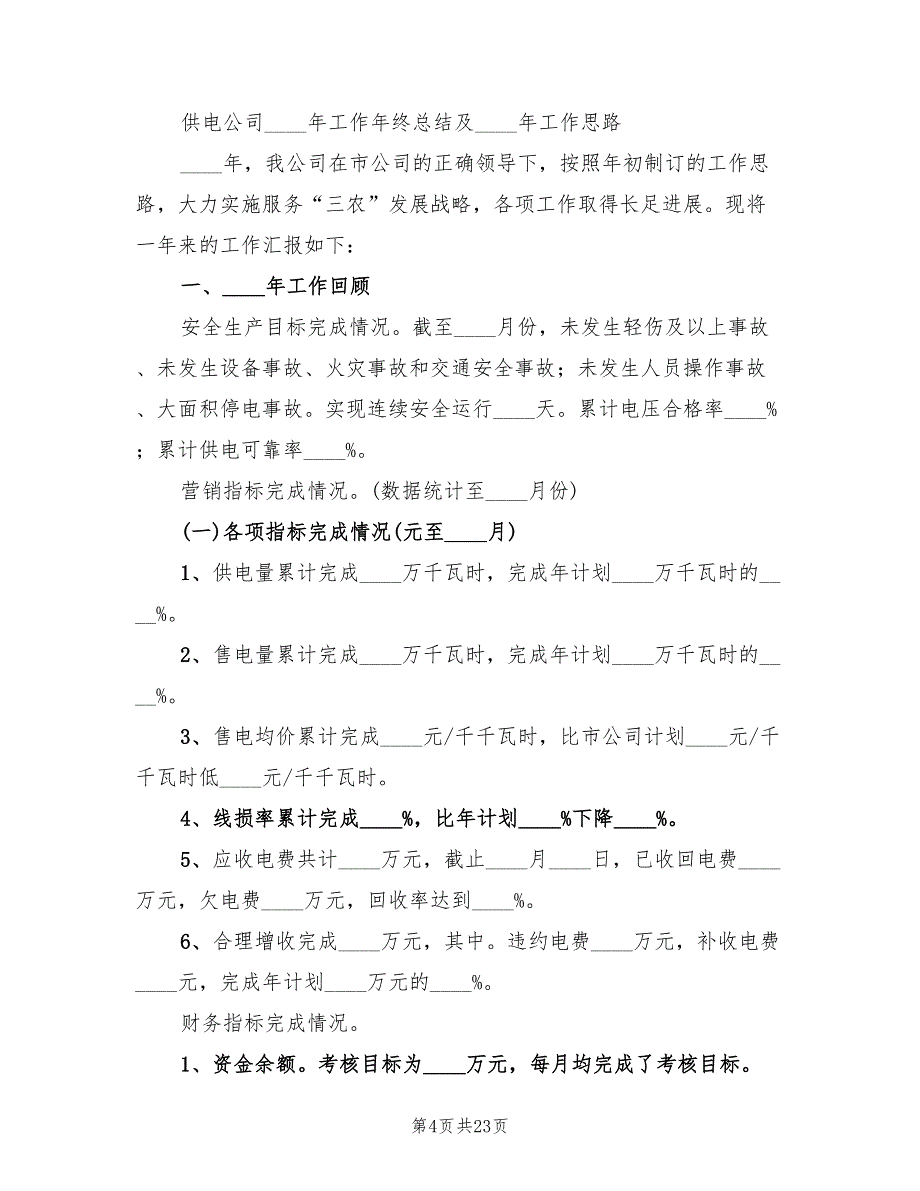 供电公司____年工作年终总结及____年工作思路
____年，我公司在市公司的正确领导下，按照年初制订的工作思
路，大力实施服务“三农”发展战略，各项工作取得长足进展。现将
一年来的工作汇报如下：
一、____年工作回顾
安全生产目标完成情况。截至____月份，未发生轻伤及以上事故
、未发生设备事故、火灾事故和交通安全事故；未发生人员操作事故
、大面积停电事故。实现连续安全运行____天。累计电压合格率____%
；累计供电可靠率____%。
营销指标完成情况。(数据统计至____月份)
(一)各项指标完成情况(元至____月)
1、供电量累计完成____万千瓦时，完成年计划____万千瓦时的__
__%。
2、售电量累计完成____万千瓦时，完成年计划____万千瓦时的__
__%。
3、售电均价累计完成____元/千千瓦时，比市公司计划____元/千
千瓦时低____元/千千瓦时。
4、线损率累计完成____%，比年计划____%下降____%。
5、应收电费共计____万元，截止____月____日，已收回电费____
万元，欠电费____万元，回收率达到____%。
6、合理增收完成____万元，其中。违约电费____万元，补收电费
____元，完成年计划____万元的____%。
财务指标完成情况。
1、资金余额。考核目标为____万元，每月均完成了考核目标。
第4页共23页